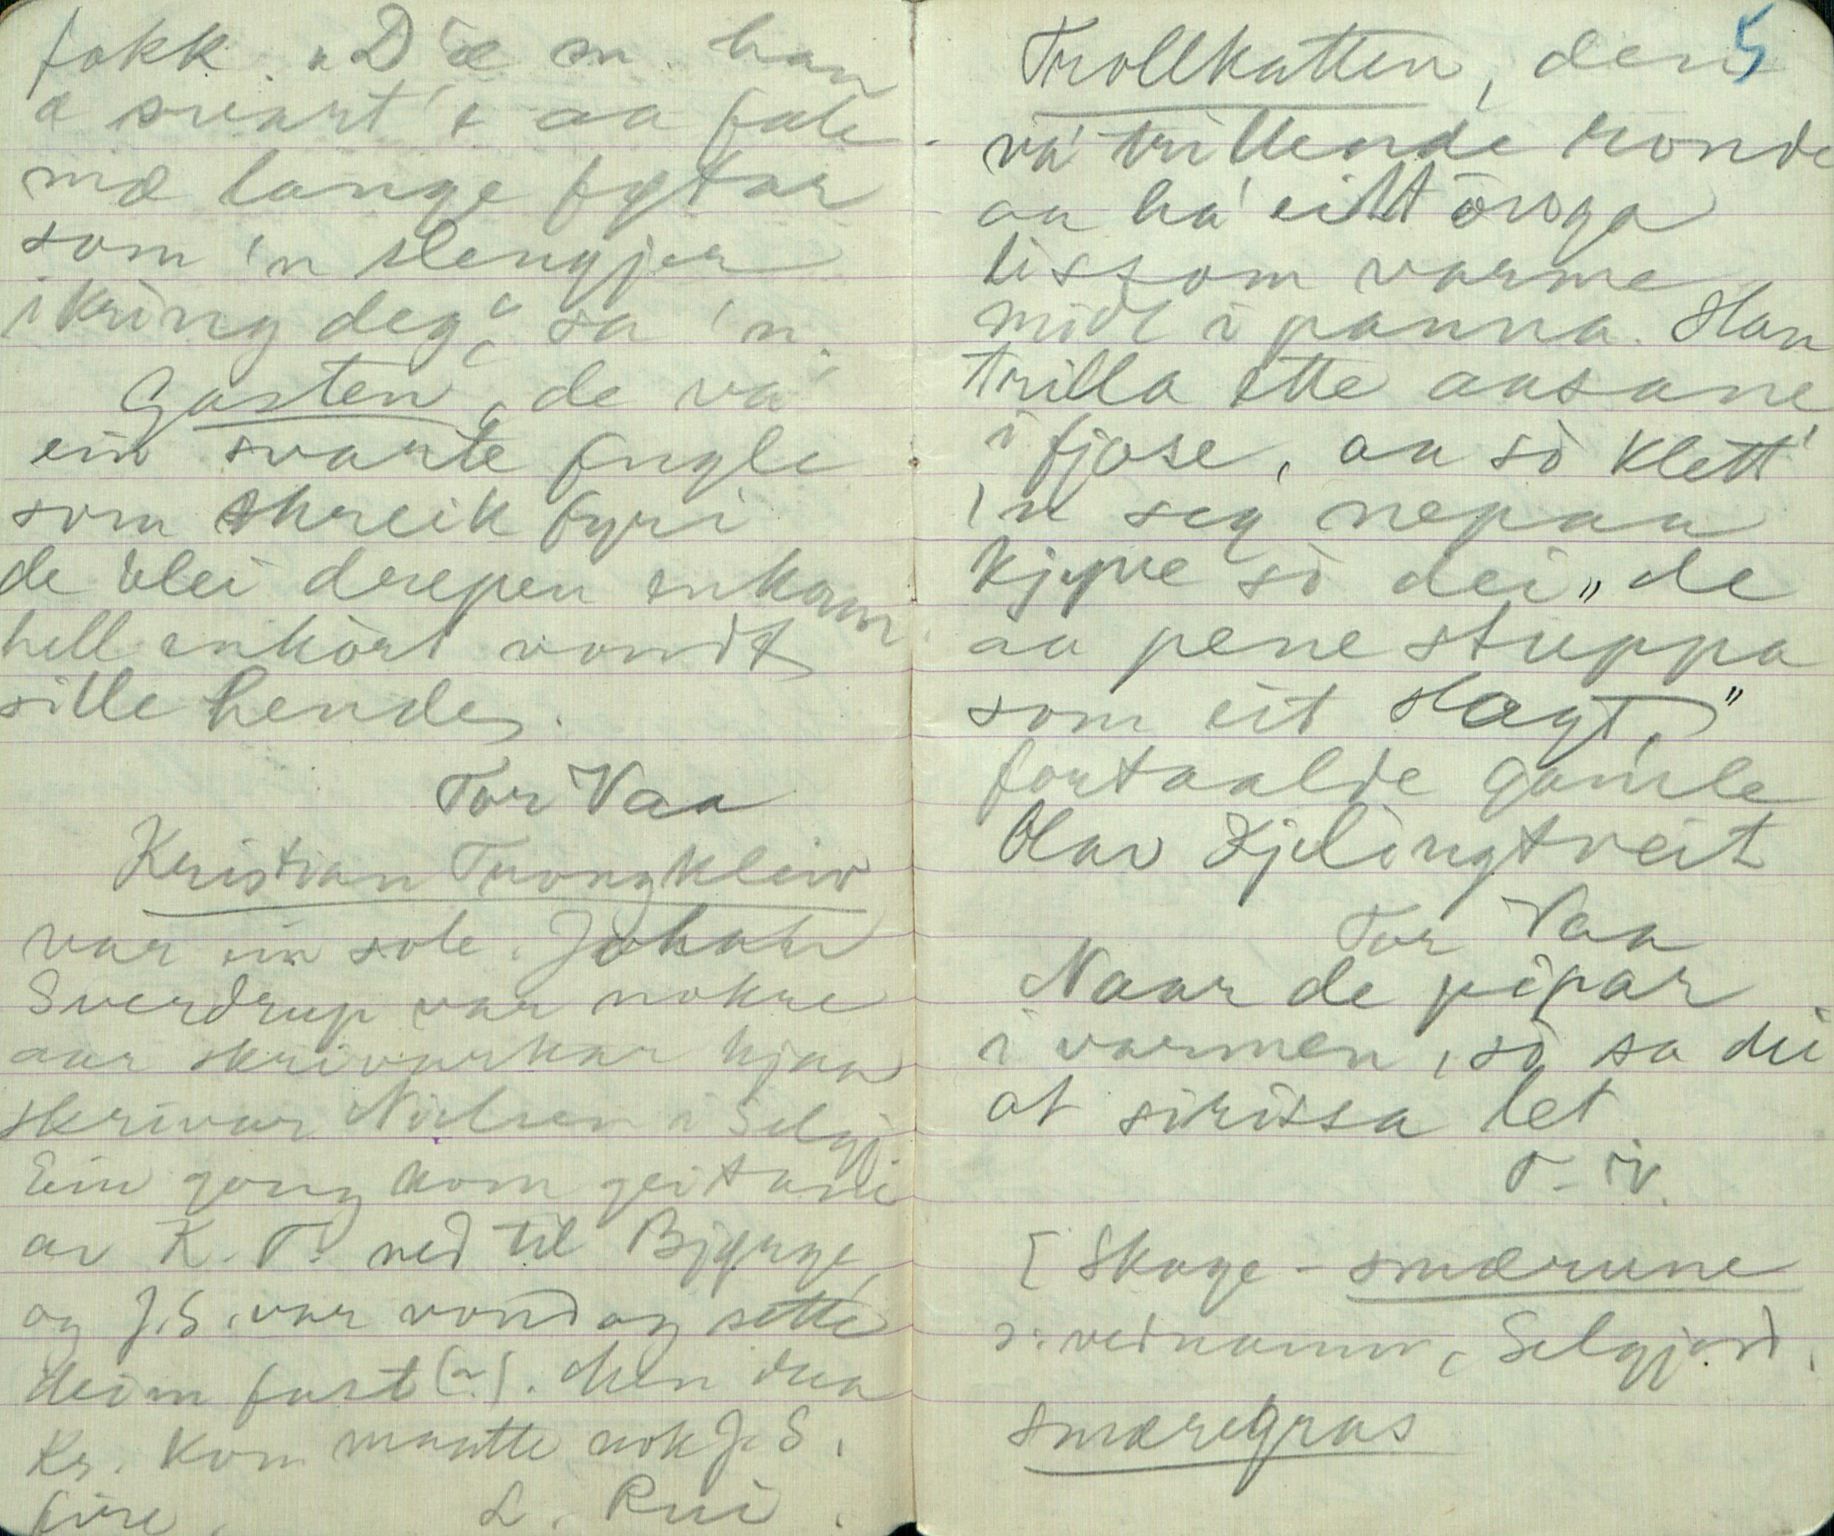 fokk. "D'æ en han
æ svart'e aa fæle
mæ lange fytar
som 'n slengjer
ikring deg", sa 'n.
Gasten, de va'
ein svarte fugle
som skreik fyri
de blei drepen enkorn
hell enkort vondt
sille hende.
Tor Vaa
Kristian Trongkleiv
var ein sole. Johan
Sverdrup var nokre
aar skrivarkar hjaa
skrivar Nielsen i Selgj.
Ein gong kom geitane
av K. T. ned til Bjørge,
og J.S. var vond og sette
deim fast (~). Men daa
Kr. kom maatte nok J.S.
fire. L. Rui.
5
Trollkatten, den
va' trillende ronde
aa ha' eitt ouga
lissom varme
midt i panna. Han
trilla ette aasane
i fjose, aa so klett'
'n seg nepaa
kjyne so dei "de
aa pene stuppa
som eit slagt,"
fortaalde gamle
Olav Kjilingtveit
Tor Vaa
Naar de pipar
i varmen, so sa dei
at sirissa let
T. V.
[Skage - smærune
ɔ: vednamn, Selgjord.
smæregras